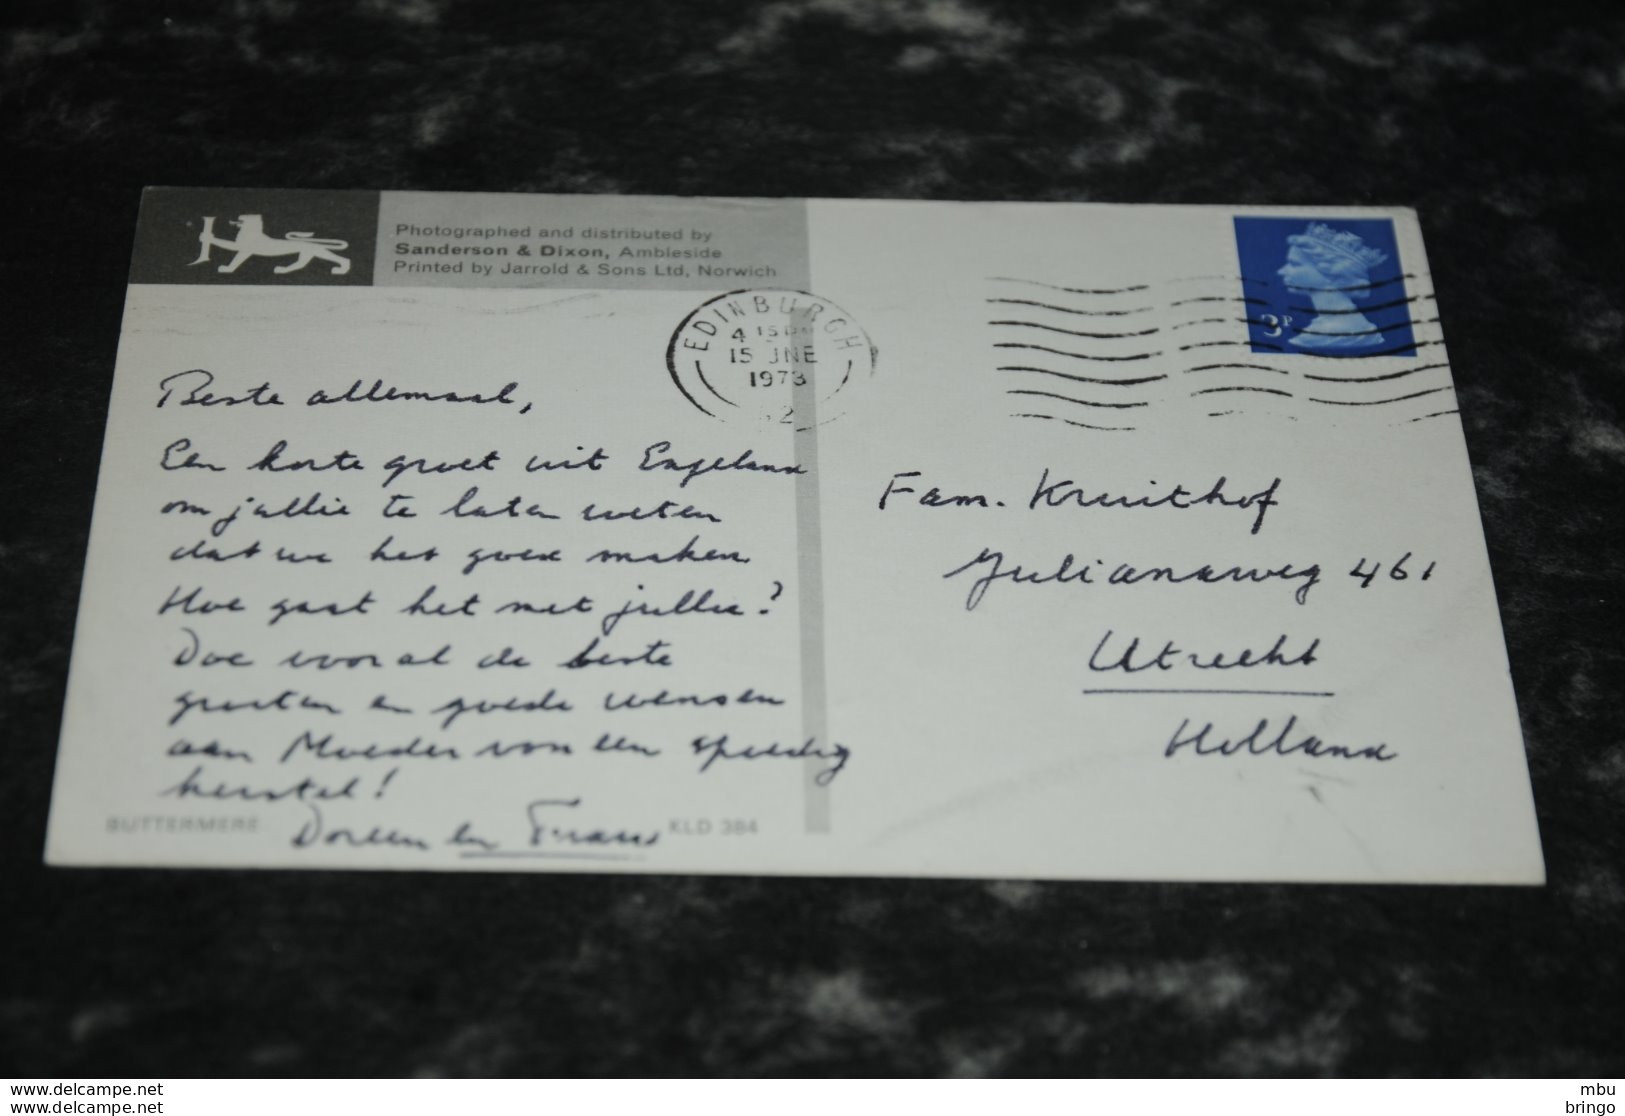 Photographed and distributed by
Sanderson & Dixon, Ambleside
Printed by Jarrold & Sons Ltd, Norwich
EDINBURGH
4 15 PM
15 JNE
1973
2
3P
Beste allemaal,
Een korte groet uit Engeland
om jullie te laten weten
dat we het goed maken
Hoe gaat het met jullie?
Doe vooral de beste
groeten en goede wensen
aan Moeder van een spoedig
herstel!
Doreen en Frans
BUTTERMERE
KLD 384
Fam. Kruithof
Julianaweg 461
Utrecht
Holland
www.delcampe.net
www.delcampe.net
mbu
bringo